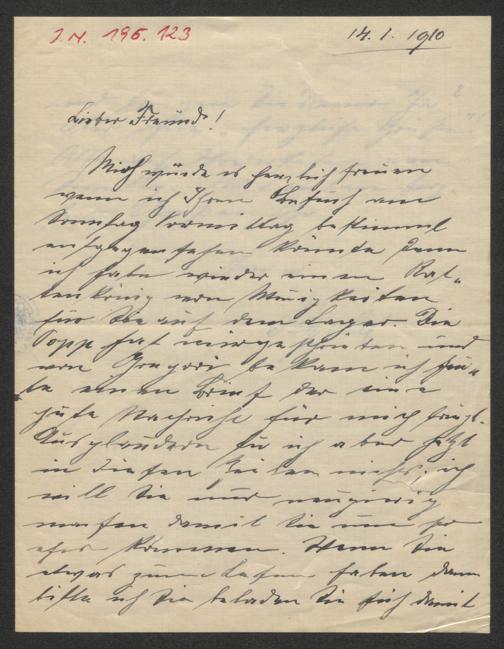 I.N. 196.123
14.I.1910
Lieber Freund!
Mich würde es herzlich freuen
wenn ich Ihrem Besuch am
Sonntag Vormittag bestimmt
entgegensehen könnte denn
ich habe wieder einen Rat-
tenkönig von Neuigkeiten
für Sie auf dem Lager. Die
Popp hat mir geschrieben und
von Gregori bekam ich heu-
te einen Brief der eine
gute Nachricht für mich bringt.
Ausplaudern tu ich aber jetzt
in diesen Zeilen nichts, ich
will Sie nur neugierig
machen damit Sie um so
eher kommen. Wenn Sie
etwas zum Lesen haben dann
bitte ich Sie beladen Sie sich damit